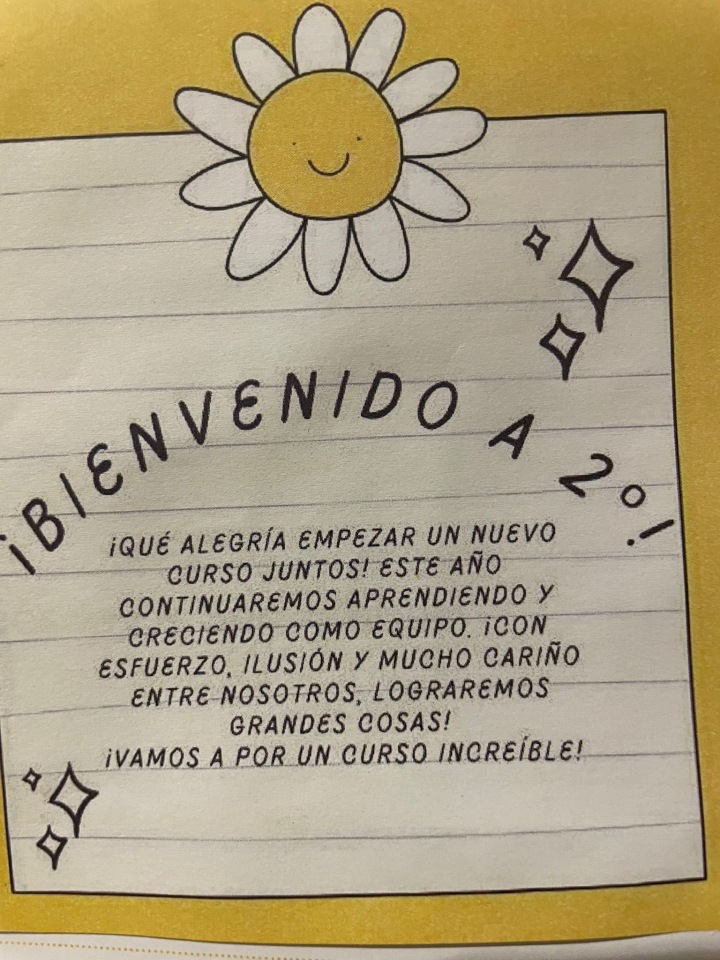 ¡BIENVENIDO A 2º!
¡QUÉ ALEGRÍA EMPEZAR UN NUEVO
CURSO JUNTOS! ESTE AÑO
CONTINUAREMOS APRENDIENDO Y
CRECIENDO COMO EQUIPO. ¡CON
ESFUERZO, ILUSIÓN Y MUCHO CARIÑO
ENTRE NOSOTROS, LOGRAREMOS
GRANDES COSAS!
¡VAMOS A POR UN CURSO INCREÍBLE!